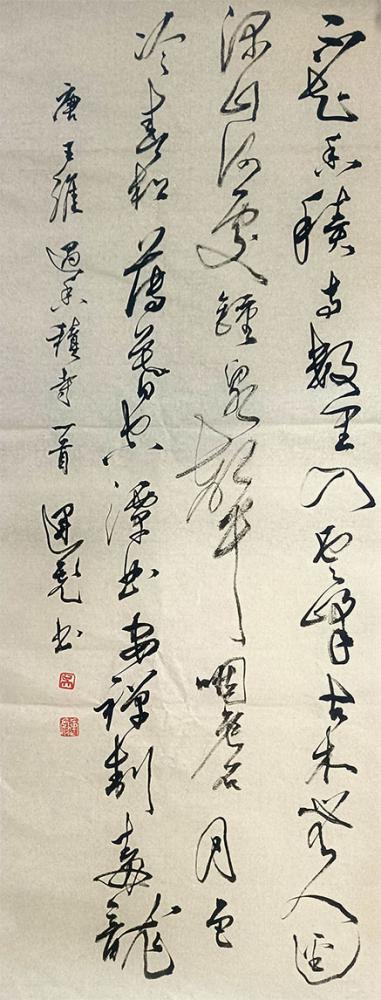 不知香積寺數里入雲峰古木無人徑
深山何處鐘泉聲咽危石月色
冷青松薄暮空潭曲安禪制毒龍
唐王維過香積寺一首 書